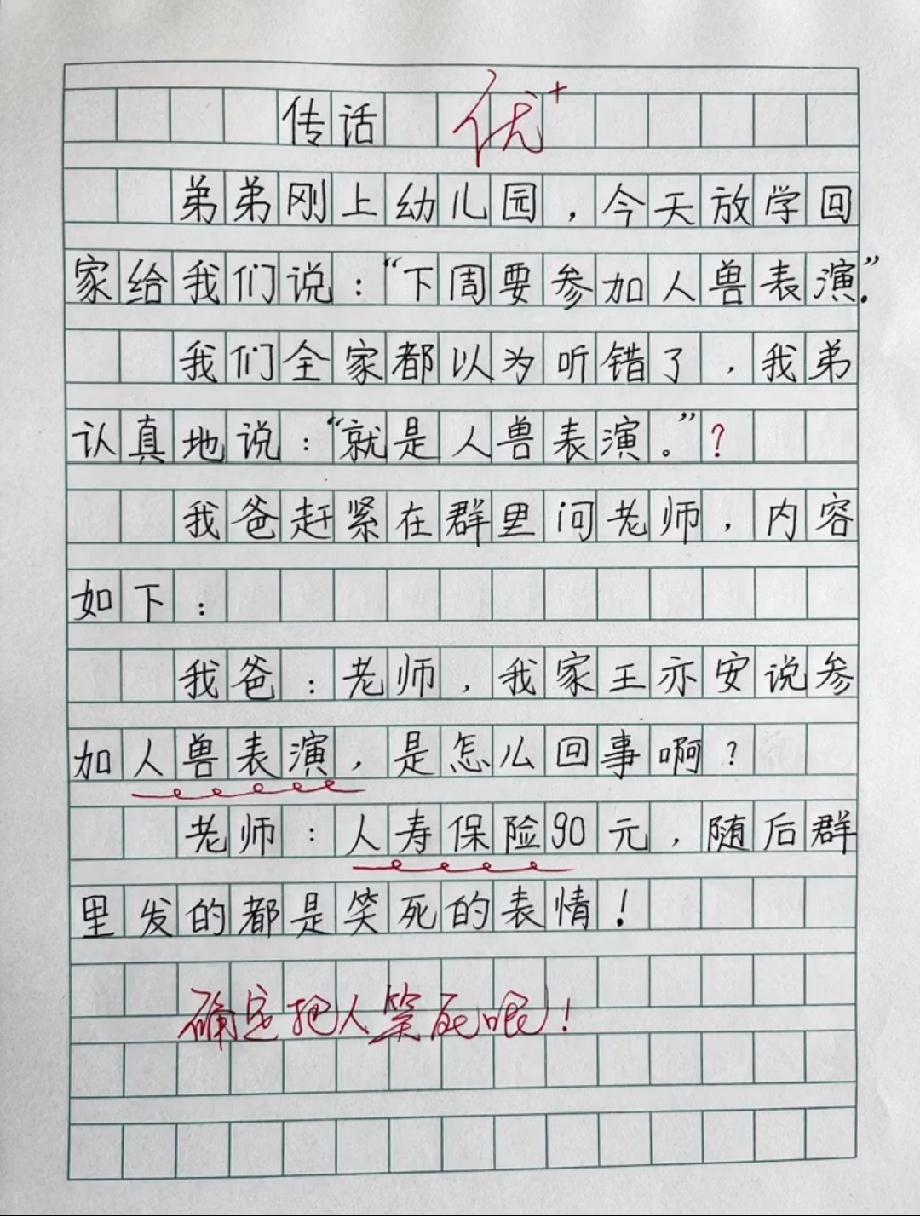 传话 优+
弟弟刚上幼儿园，今天放学回
家给我们说：“下周要参加人兽表演.”
我们全家都以为听错了，我弟
认真地说：“就是人兽表演。”?
我爸赶紧在群里问老师，内容
如下：
我爸：老师，我家王亦安说参
加人兽表演，是怎么回事啊？
老师：人寿保险90元，随后群
里发的都是笑死的表情！
确定把人笑死哦！